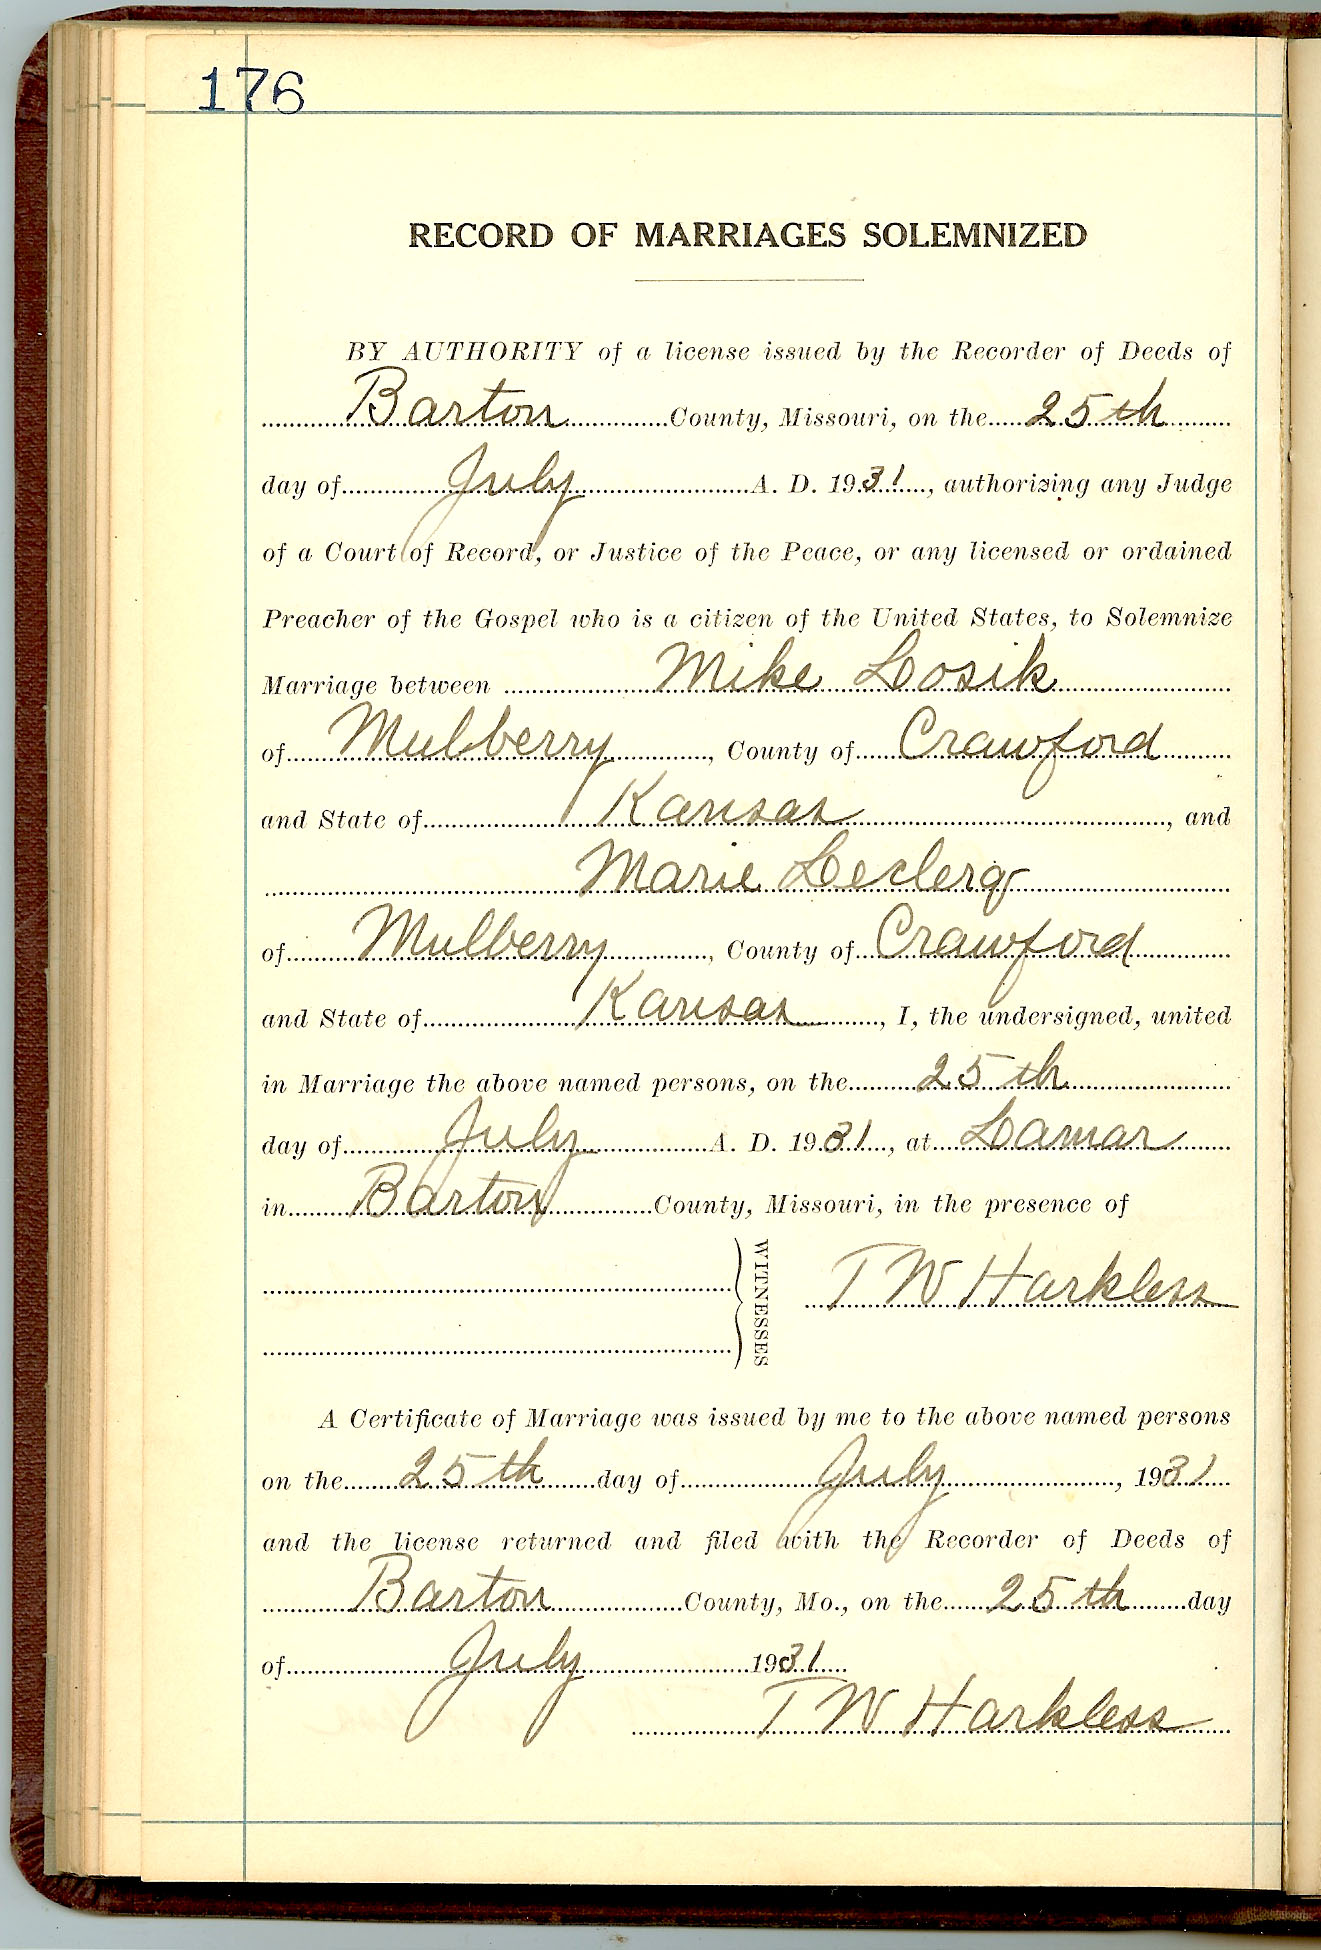 176
RECORD OF MARRIAGES SOLEMNIZED
BY AUTHORITY of a license issued by the Recorder of Deeds of
Barton County, Missouri, on the 25th
day of July A. D. 1931, authorizing any Judge
of a Court of Record, or Justice of the Peace, or any licensed or ordained
Preacher of the Gospel who is a citizen of the United States, to Solemnize
Marriage between Mike Losik
of Mulberry, County of Crawford
and State of Kansas, and
Marie Leclerq
of Mulberry, County of Crawford
and State of Kansas, I, the undersigned, united
in Marriage the above named persons, on the 25th
day of July A. D. 1931, at Lamar
in Barton County, Missouri, in the presence of
WITNESSES
T W Harkless
A Certificate of Marriage was issued by me to the above named persons
on the 25th day of July, 1931
and the license returned and filed with the Recorder of Deeds of
Barton County, Mo., on the 25th day
of July 1931
T W Harkless